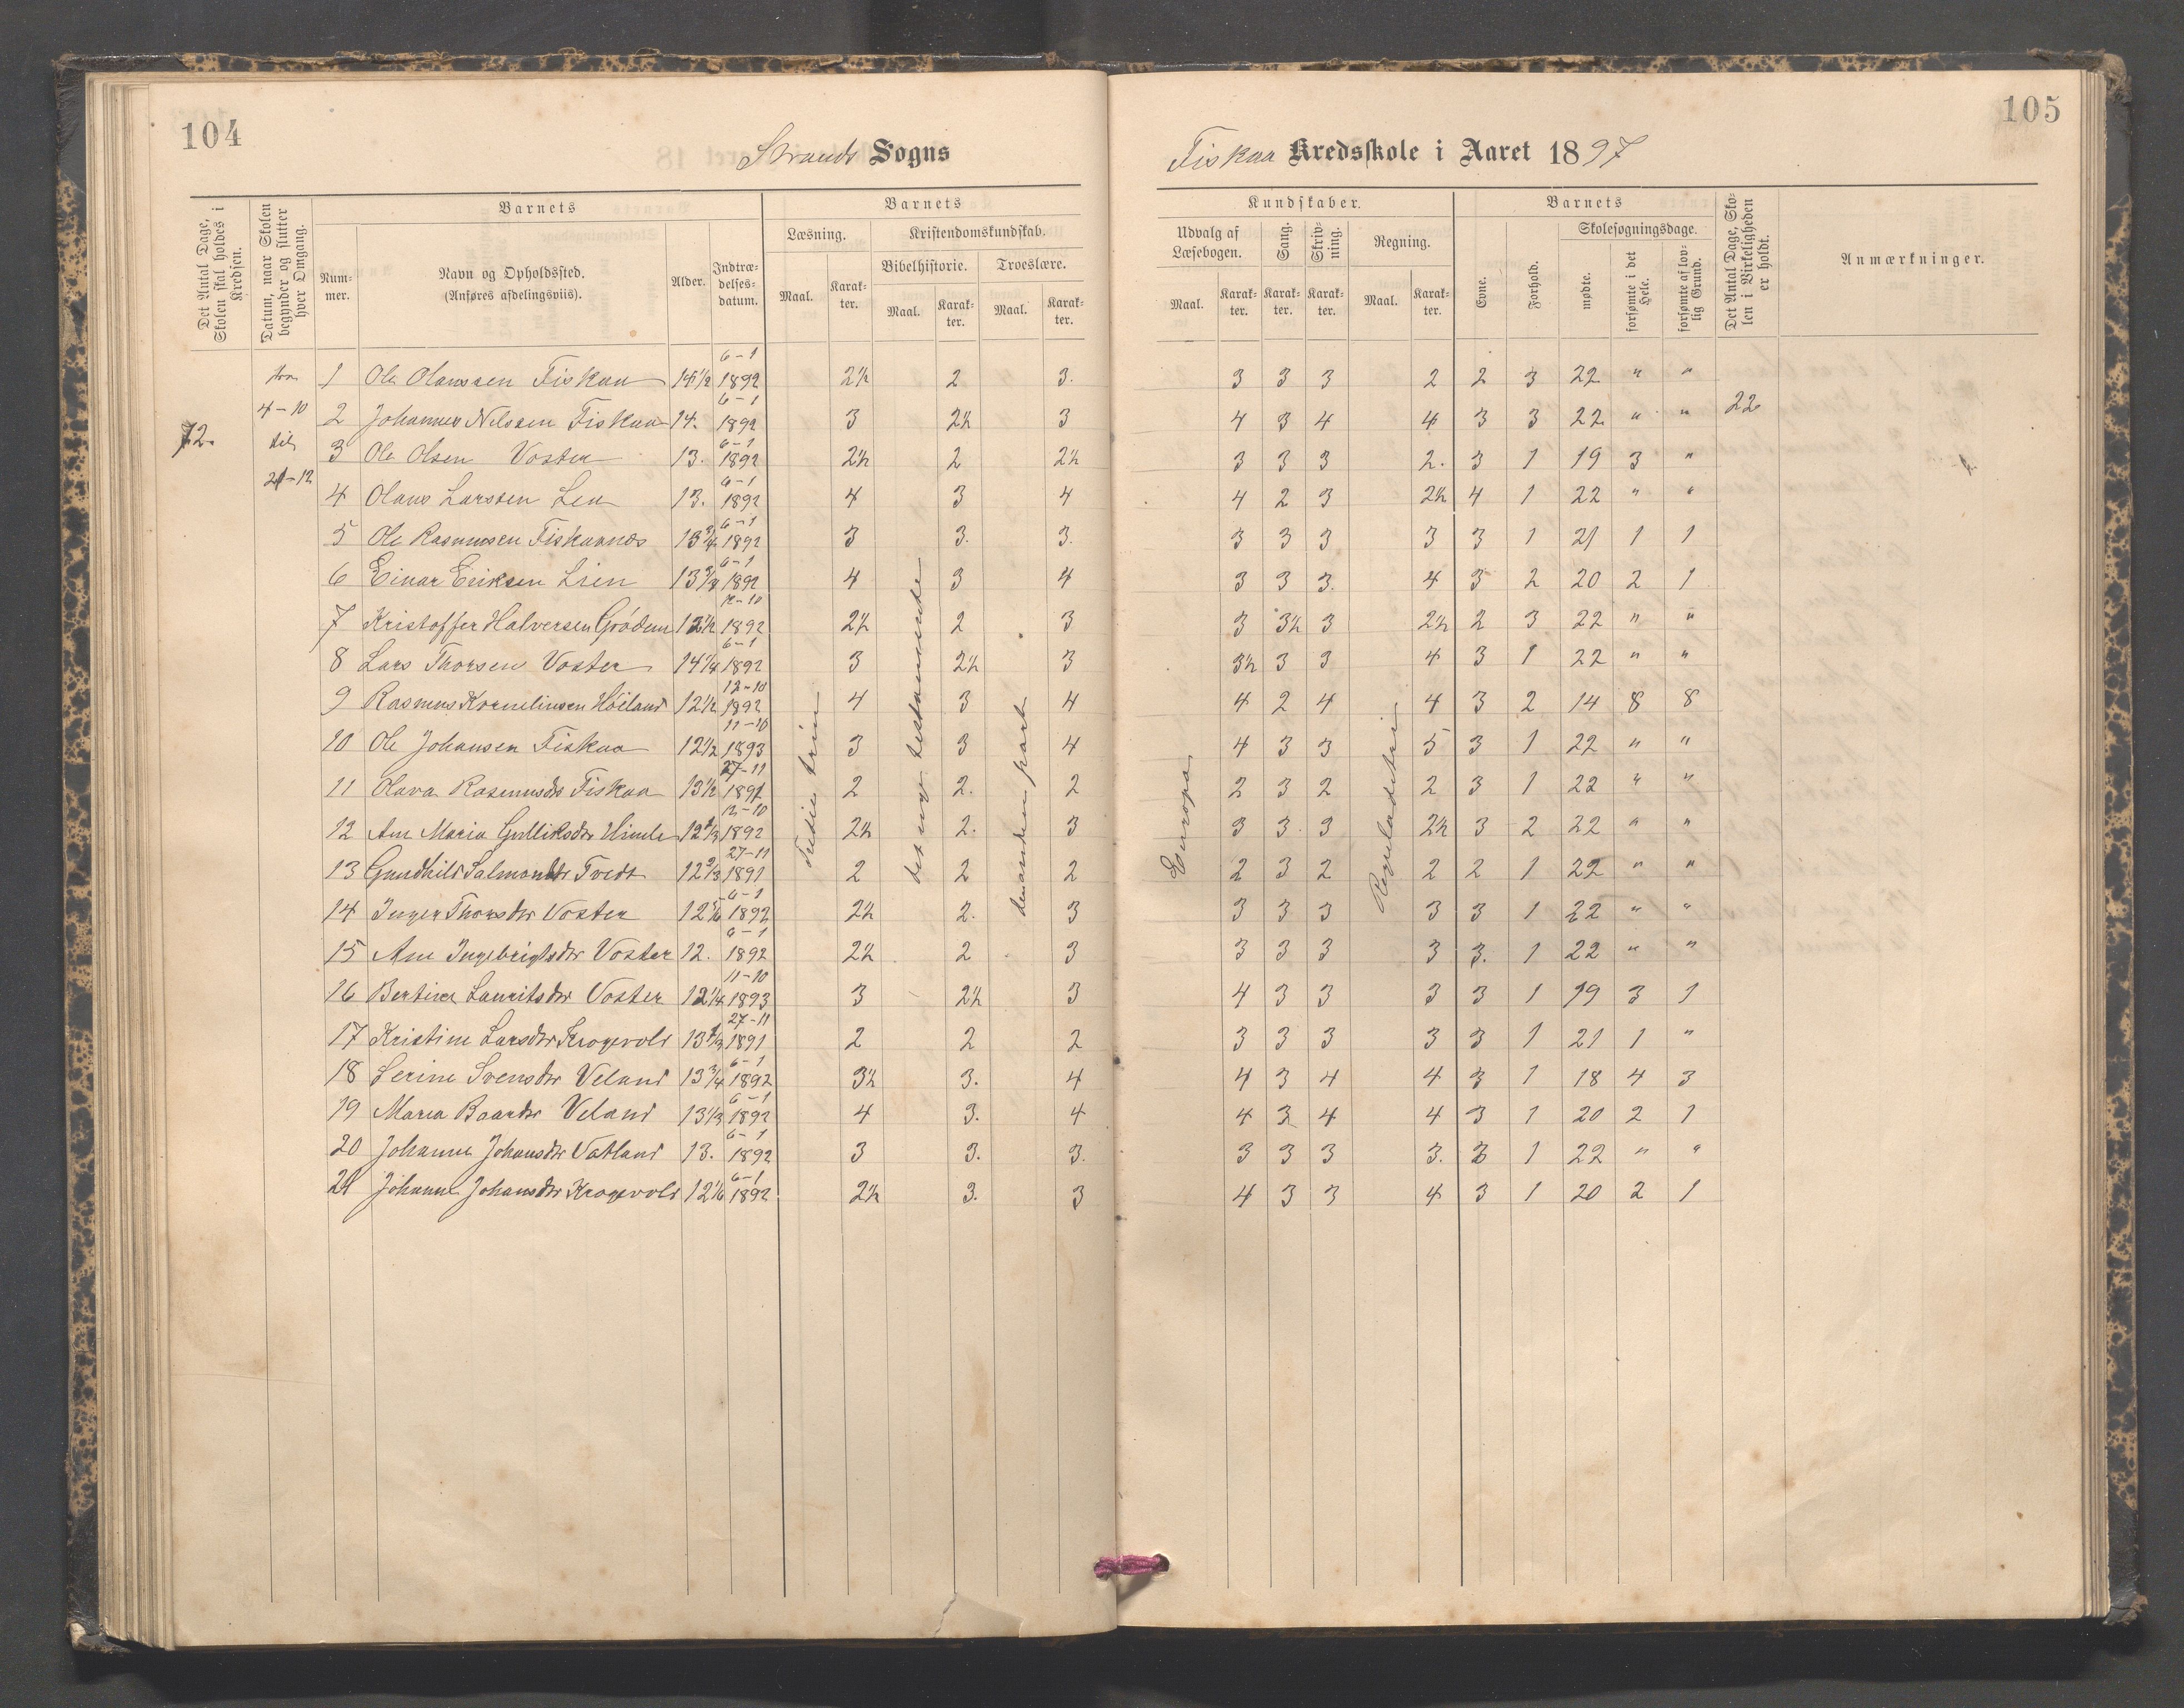 104
105
Strands Sogns
Fiskaa Kredsskole i Aaret 1897
Det Antal Dage, Skolen skal holdes i Kredsen.
Datum, naar Skolen begynder og slutter hver Omgang.
Barnets
Nummer.
Navn og Opholdssted.
(Anføres afdelingsviis).
Alder.
Indtrædelses-datum.
Barnets
Læsning.
Maal.
Karakter.
Kristendomskundskab.
Bibelhistorie.
Maal.
Karakter.
Troeslære.
Maal.
Karakter.
Kundskaber.
Udvalg af Læsebogen.
Maal.
Karakter.
Sang.
Karakter.
Skrivning.
Karakter.
Regning.
Maal.
Karakter.
Barnets
Evne.
Forhold.
Skolesøgningsdage.
mødte.
forsømte i det Hele.
forsømte af lovlig Grund.
Det Antal Dage, Skolen i Virkeligheden er holdt.
Anmærkninger.
72.
fra
4-10
til
21-12
tredie trin
det nye testamente
den anden part
Europa
22
1 Ole Olaussen Fiskaa 14½ 6-1 1892 2½ 2 3. 3 3 3 2 2 3 22 " "
2 Johannes Nilssen Fiskaa 14. 6-1 1892 3 2½ 3 4 3 4 4 3 3 22 " "
3 Ole Olsen Voster 13. 6-1 1892 2½ 2 2½ 3 3 3 2. 3 1 19 3 "
4 Olaus Larssen Lea 13. 6-1 1892 4 3 4 4 2 3 2½ 4 1 22 " "
5 Ole Rasmussen Fiskaanæs 13¾ 6-1 1892 3 3. 3. 3 3 3 3 3 1 21 1 1
6 Einar Eriksen Lien 13¾ 6-1 1892 4 3 4 3 3 3. 4 3 2 20 2 1
7 Kristoffer Halversen Grödem 12½ 12-10 1892 2½ 2 3 3 3½ 3 2½ 2 3 22 " "
8 Lars Thorsen Voster 14¼ 6-1 1892 3 2½ 3 3½ 3 3 4 3 1 22 " "
9 Rasmus Korneliusen Höiland 12½ 12-10 1892 4 3 4 4 2 4 4 3 2 14 8 8
10 Ole Johansen Fiskaa 12½ 11-10 1893 3 3 4 4 3 3 5 3 1 22 " "
11 Olava Rasmusdr Fiskaa 13½ 27-11 1891 2 2. 2 2 3 2 2 3 1 22 " "
12 Ane Maria Gulliksdr Himle 12⅓ 12-10 1892 2½ 2. 3 3 3 3 2½ 3 2 22 " "
13 Gundhild Salmondr Tvedt 12⅔ 27-11 1891 2 2 2 2 3 2 2 2 1 22 " "
14 Inger Thorsdr Voster 12⅚ 6-1 1892 2½ 2. 3 3 3 3 3 3 1 22 " "
15 Ane Ingebrigtsdr Voster 12. 6-1 1892 2½ 2 3 3 3 3 3 3. 1 22 " "
16 Bertine Lauritsdr Voster 12¼ 11-10 1893 3 2½ 3 4 3 3 3 3 1 19 3 1
17 Kristine Larsdr Krogevold 13⅓ 27-11 1891 2 2 2 3 3 3 3 3 1 21 1 "
18 Serine Svensdr Veland 13¾ 6-1 1892 3½ 3. 4 4 3 4 4 3 1 18 4 3
19 Maria Baardr Veland 13⅓ 6-1 1892 4 3. 4 4 3 4 4 3 1 20 2 1
20 Johanna Johansdr Vatland 13. 6-1 1892 3 3. 3. 3 3 3 3. 3 1 22 " "
21 Johanne Johansdr Krogevold 12⅙ 6-1 1892 2½ 3. 3 4 3 3 4 3 1 20 2 1